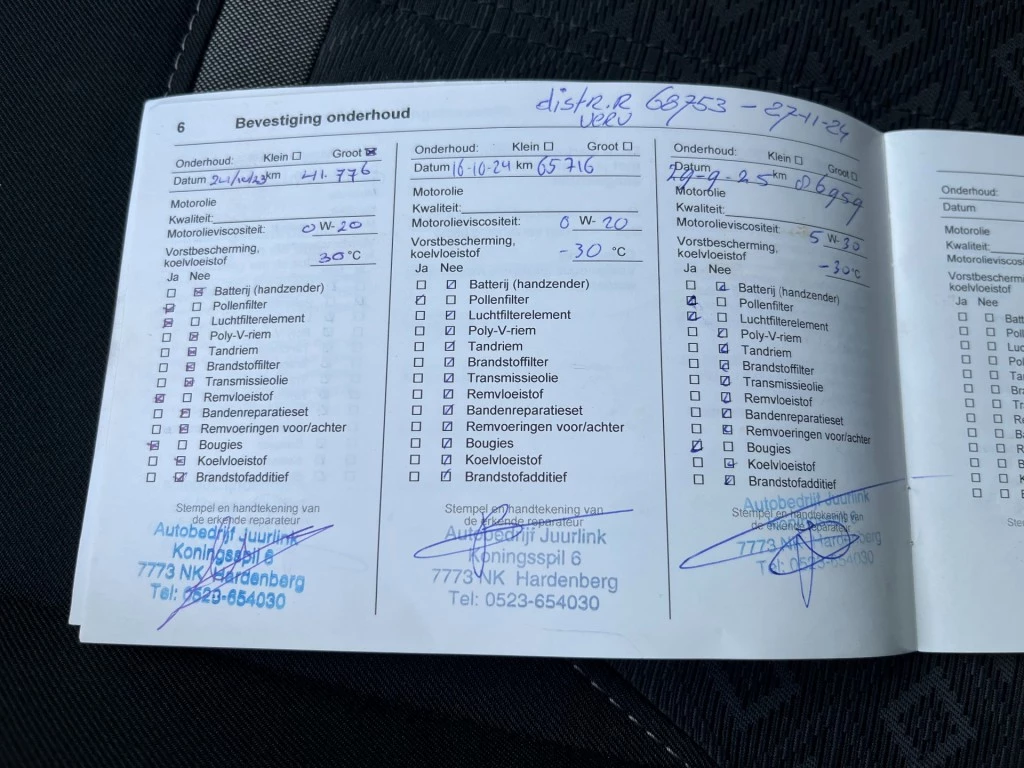 distr.R 68753 - 27-11-24
verv
6 Bevestiging onderhoud
Onderhoud: Klein ☐ Groot ☒
Datum 24/10/23 km 41.776
Motorolie
Kwaliteit:
Motorolieviscositeit: 0 W- 20
Vorstbescherming,
koelvloeistof 30 °C
Ja Nee
☐ ☒ Batterij (handzender)
☒ ☐ Pollenfilter
☒ ☐ Luchtfilterelement
☐ ☒ Poly-V-riem
☐ ☒ Tandriem
☐ ☒ Brandstoffilter
☐ ☒ Transmissieolie
☒ ☐ Remvloeistof
☐ ☒ Bandenreparatieset
☐ ☒ Remvoeringen voor/achter
☒ ☐ Bougies
☐ ☒ Koelvloeistof
☐ ☒ Brandstofadditief
Stempel en handtekening van
de erkende reparateur
Autobedrijf Juurlink
Koningsspil 6
7773 NK Hardenberg
Tel: 0523-654030
Onderhoud: Klein ☐ Groot ☐
Datum 16-10-24 km 65716
Motorolie
Kwaliteit:
Motorolieviscositeit: 0 W- 20
Vorstbescherming,
koelvloeistof -30 °C
Ja Nee
☐ ☑ Batterij (handzender)
☑ ☐ Pollenfilter
☐ ☑ Luchtfilterelement
☐ ☑ Poly-V-riem
☐ ☑ Tandriem
☐ ☑ Brandstoffilter
☐ ☑ Transmissieolie
☐ ☑ Remvloeistof
☐ ☑ Bandenreparatieset
☐ ☑ Remvoeringen voor/achter
☐ ☑ Bougies
☐ ☑ Koelvloeistof
☐ ☑ Brandstofadditief
Stempel en handtekening van
de erkende reparateur
Autobedrijf Juurlink
Koningsspil 6
7773 NK Hardenberg
Tel: 0523-654030
Onderhoud: Klein ☐ Groot ☐
Datum 29-9-25 km 86959
Motorolie
Kwaliteit:
Motorolieviscositeit: 5 W- 30
Vorstbescherming,
koelvloeistof -30°C
Ja Nee
☐ ☑ Batterij (handzender)
☑ ☐ Pollenfilter
☑ ☐ Luchtfilterelement
☐ ☑ Poly-V-riem
☐ ☑ Tandriem
☐ ☑ Brandstoffilter
☐ ☑ Transmissieolie
☐ ☑ Remvloeistof
☐ ☑ Bandenreparatieset
☐ ☑ Remvoeringen voor/achter
☑ ☐ Bougies
☐ ☑ Koelvloeistof
☐ ☑ Brandstofadditief
Stempel en handtekening van
de erkende reparateur
Autobedrijf Juurlink
7773 NK Hardenberg
Tel: 0523-654030
Onderhoud:
Datum
Motorolie
Kwaliteit:
Motorolieviscosit
Vorstbescherm
koelvloeistof
Ja Nee
☐ ☐ Batt
☐ ☐ Pol
☐ ☐ Luc
☐ ☐ Po
☐ ☐ Ta
☐ ☐ Br
☐ ☐ Tr
☐ ☐ R
☐ ☐ B
☐ ☐ R
☐ ☐ B
☐ ☐ K
☐ ☐ B
Ste